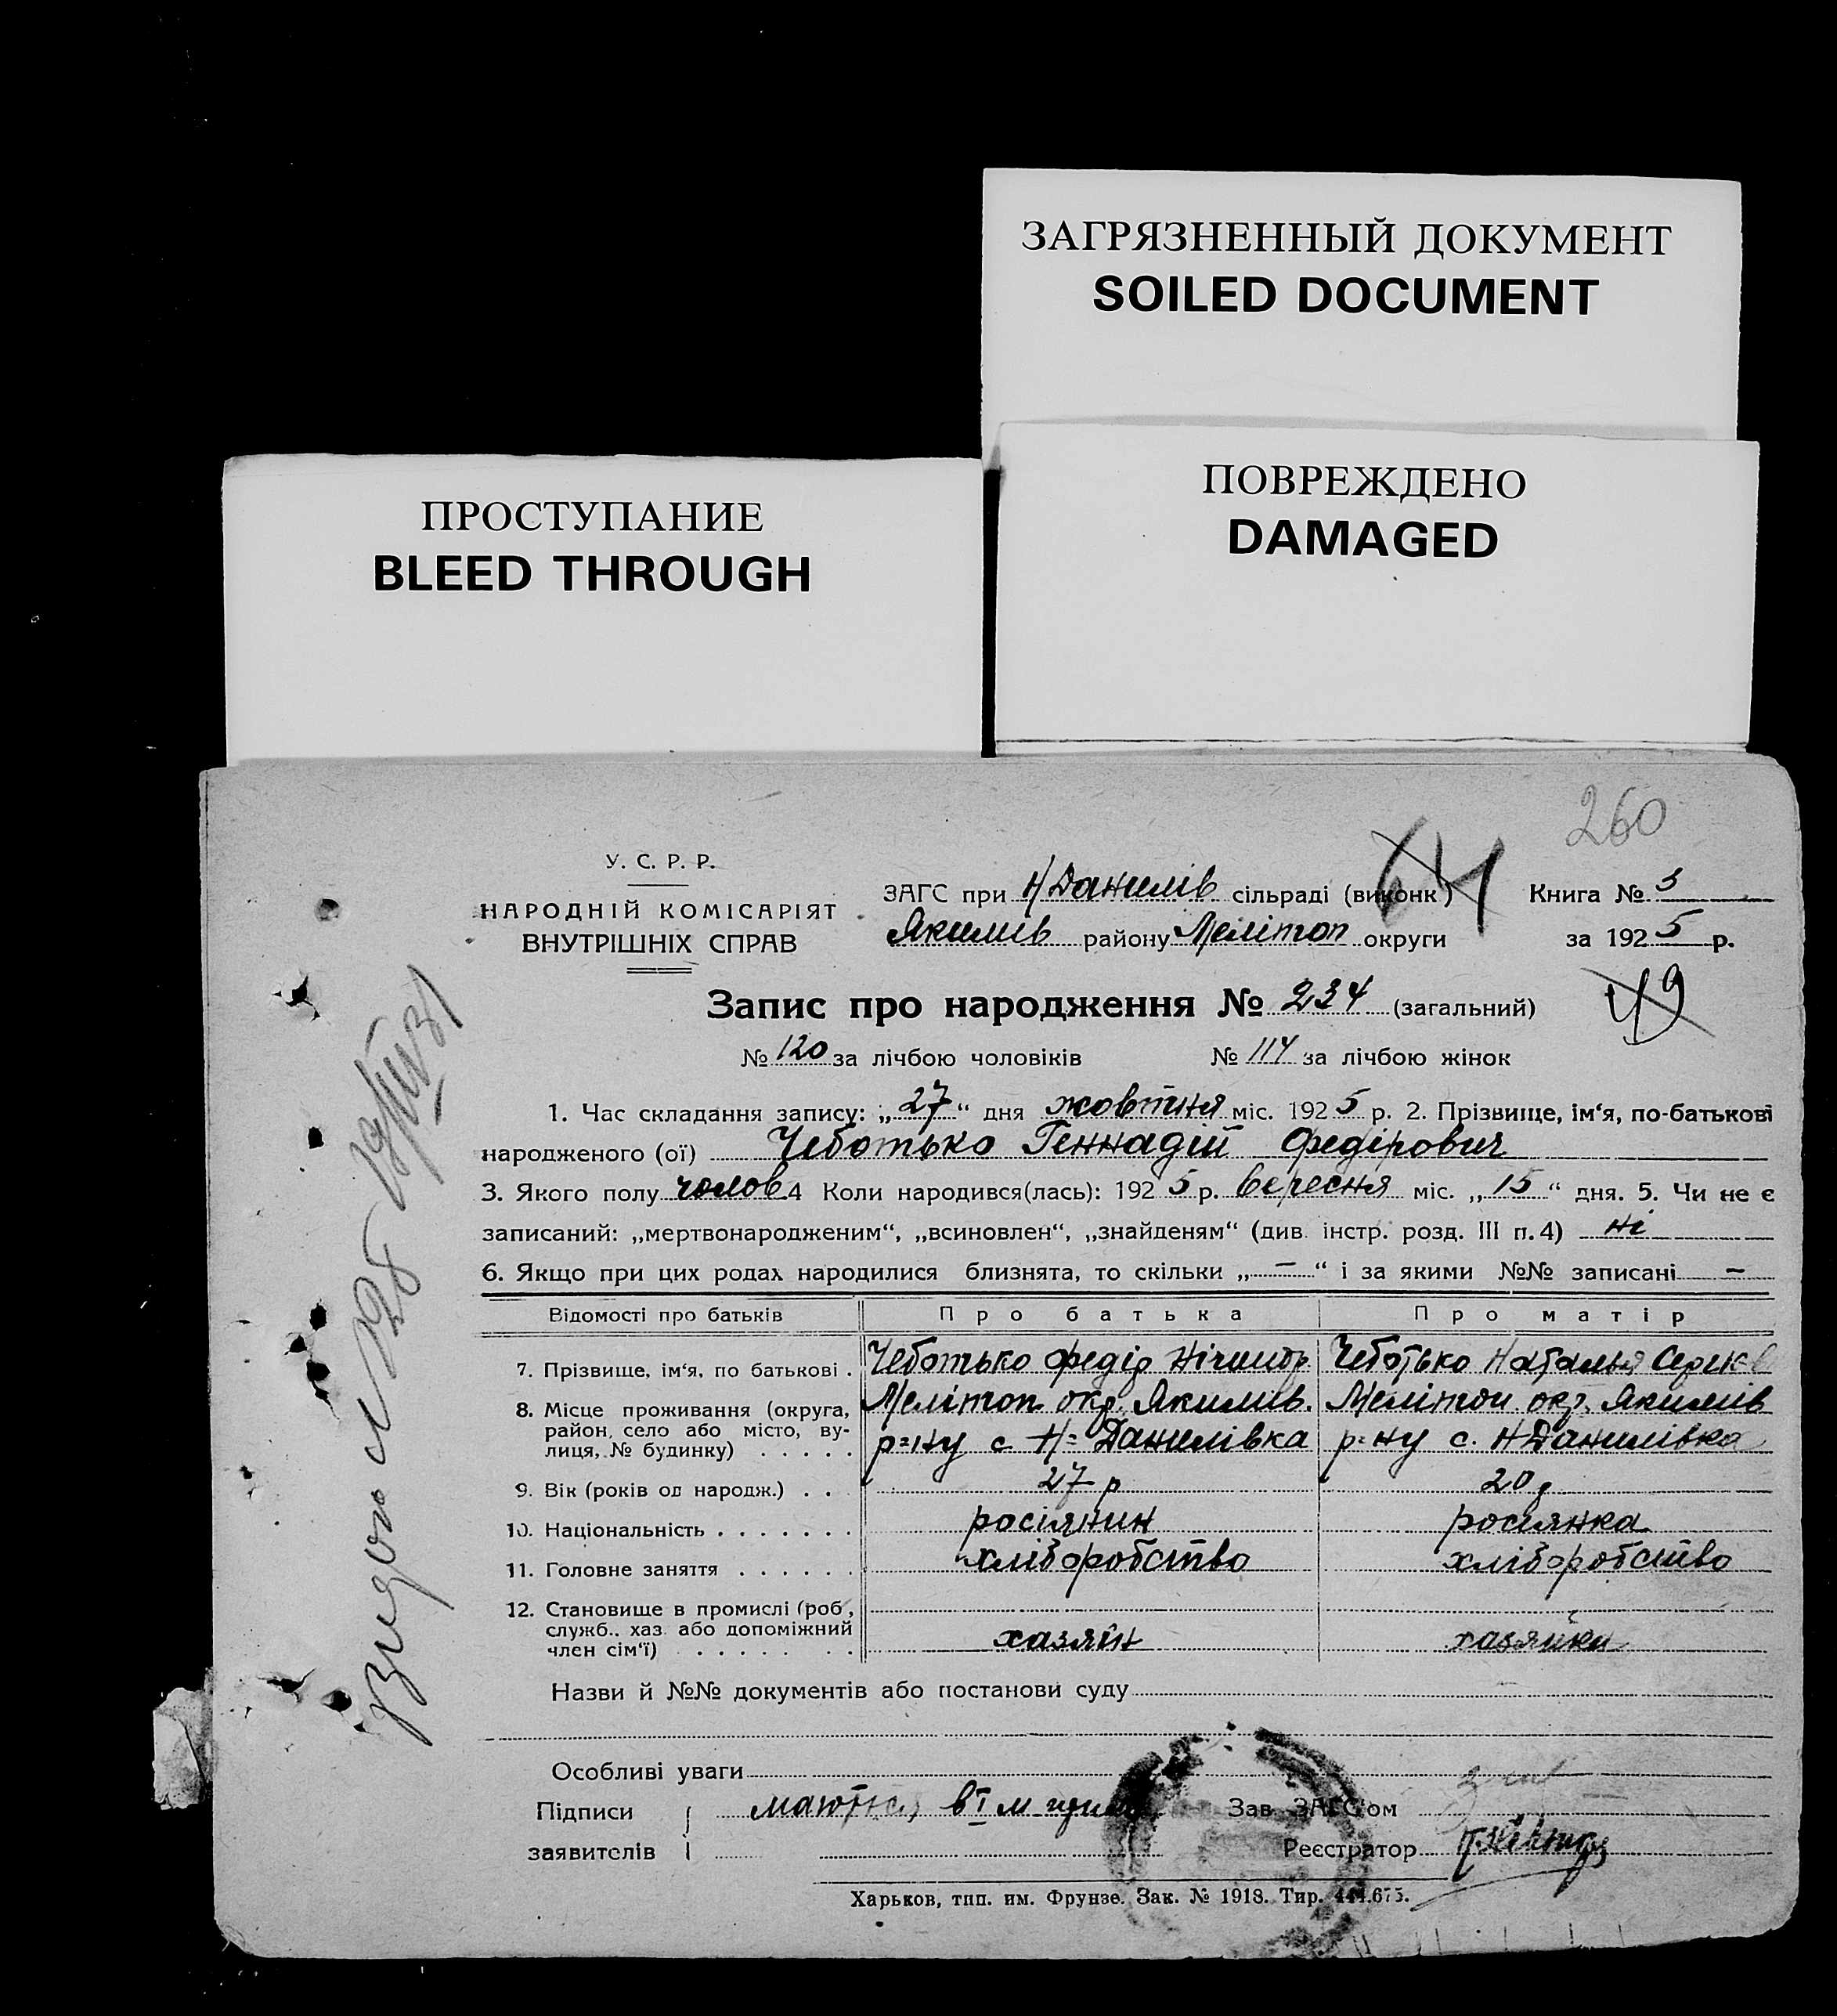 ЗАГРЯЗНЕННЫЙ ДОКУМЕНТ
SOILED DOCUMENT
ПРОСТУПАНИЕ
BLEED THROUGH
ПОВРЕЖДЕНО
DAMAGED
260
У. С. Р. Р.
НАРОДНІЙ КОМІСАРІЯТ
ВНУТРІШНІХ СПРАВ
ЗАГС при Н/Данилів сільраді (виконк)
Якимів району Мелітоп округи
Книга № 3
за 1925 р.
49
Запис про народження № 234 (загальний)
№ 120 за лічбою чоловіків № 114 за лічбою жінок
1. Час складання запису: „27“ дня жовтня міс. 1925 р. 2. Прізвище, ім‘я, по-батькові
народженого (ої) Чеботько Геннадій Федірович
3. Якого полу чолов 4 Коли народився(лась): 1925 р. вересня міс. „15“ дня. 5. Чи не є
записаний: „мертвонародженим“, „всиновлен“, „знайденям“ (див. інстр. розд. III п. 4) ні
6. Якщо при цих родах народилися близнята, то скільки „—“ і за якими №№ записані —
Відомості про батьків Про батька Про матір
7. Прізвище, ім‘я, по батькові . Чеботько Федір Чеботько Наталья
8. Місце проживання (округа, район, село або місто, вулиця, № будинку) . . . . .
Мелітоп окр. Якимів. Мелітоп окр. Якимів
р=ну с Н=Данилівка р=ну с. НДанилівка
9. Вік (років од народж.) . . . 27 р 20 р
10. Національність . . . . . . . росіянин росіянка
11. Головне заняття . . . . . . хліборобство хліборобство
12. Становище в промислі (роб., служб., хаз. або допоміжний член сім‘ї) . . . . . . . хазяїн хазяйка
Назви й №№ документів або постанови суду
Особливі уваги
Підписи
заявителів
маються в І м
Зав. ЗАГС‘ом
Реєстратор
Харьков, тип. им. Фрунзе. Зак. № 1918. Тир. 444.675.